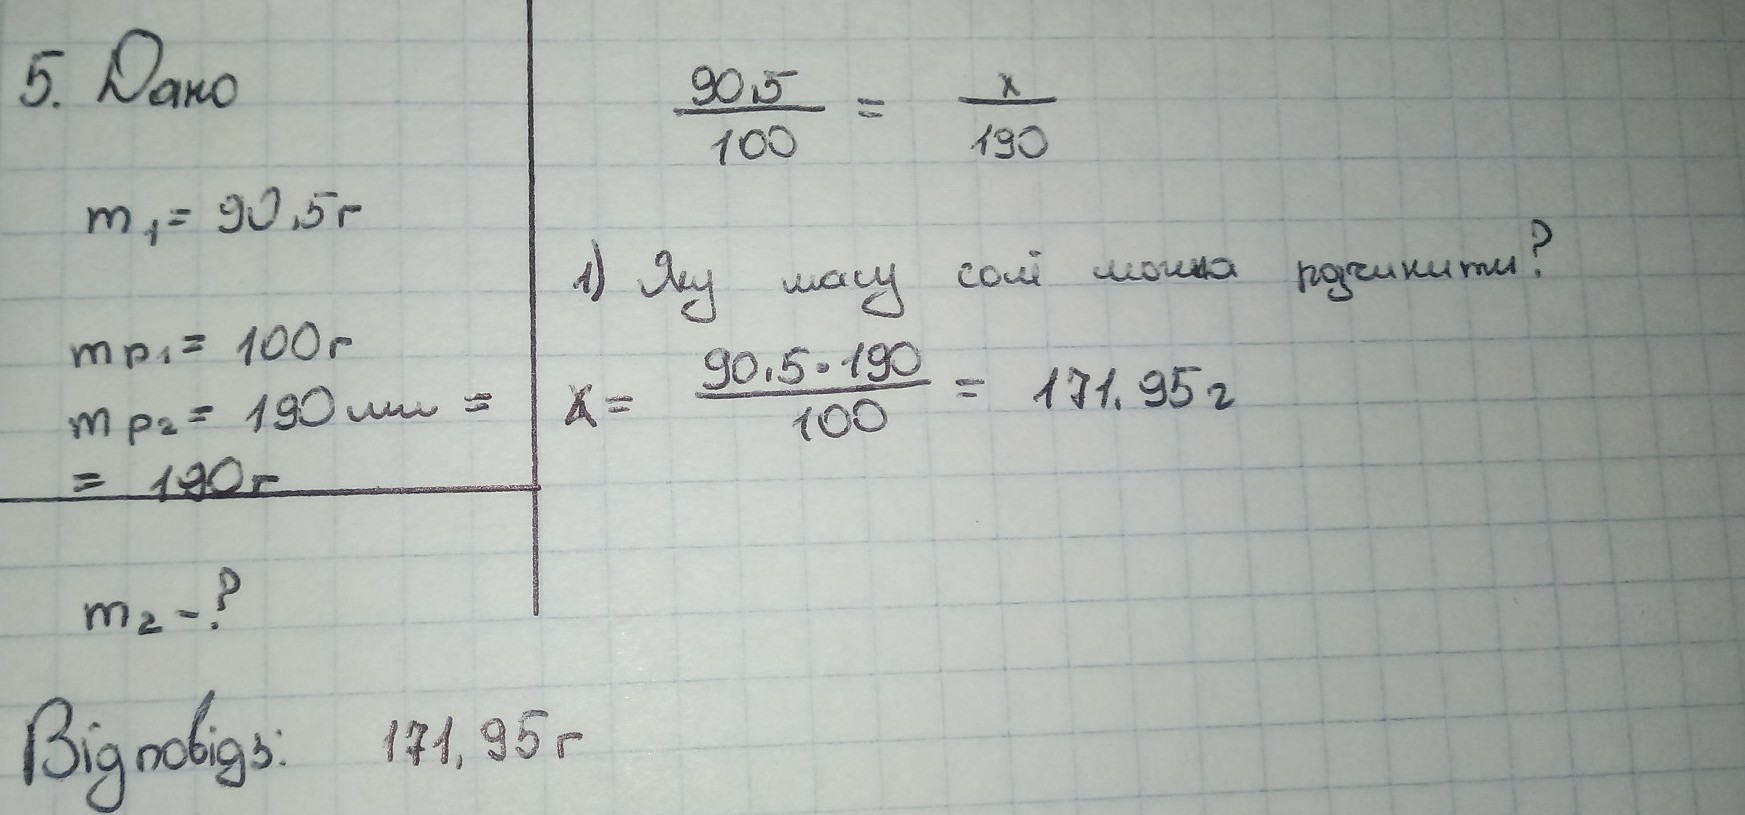 5. Дано
m₁ = 90,5г
mр₁ = 100г
mр₂ = 190мл =
= 190г
m₂ - ?
90,5/100 = x/190
1) Яку масу солі можна розчинити?
x = 90,5·190/100 = 171,95г
Відповідь: 171,95г